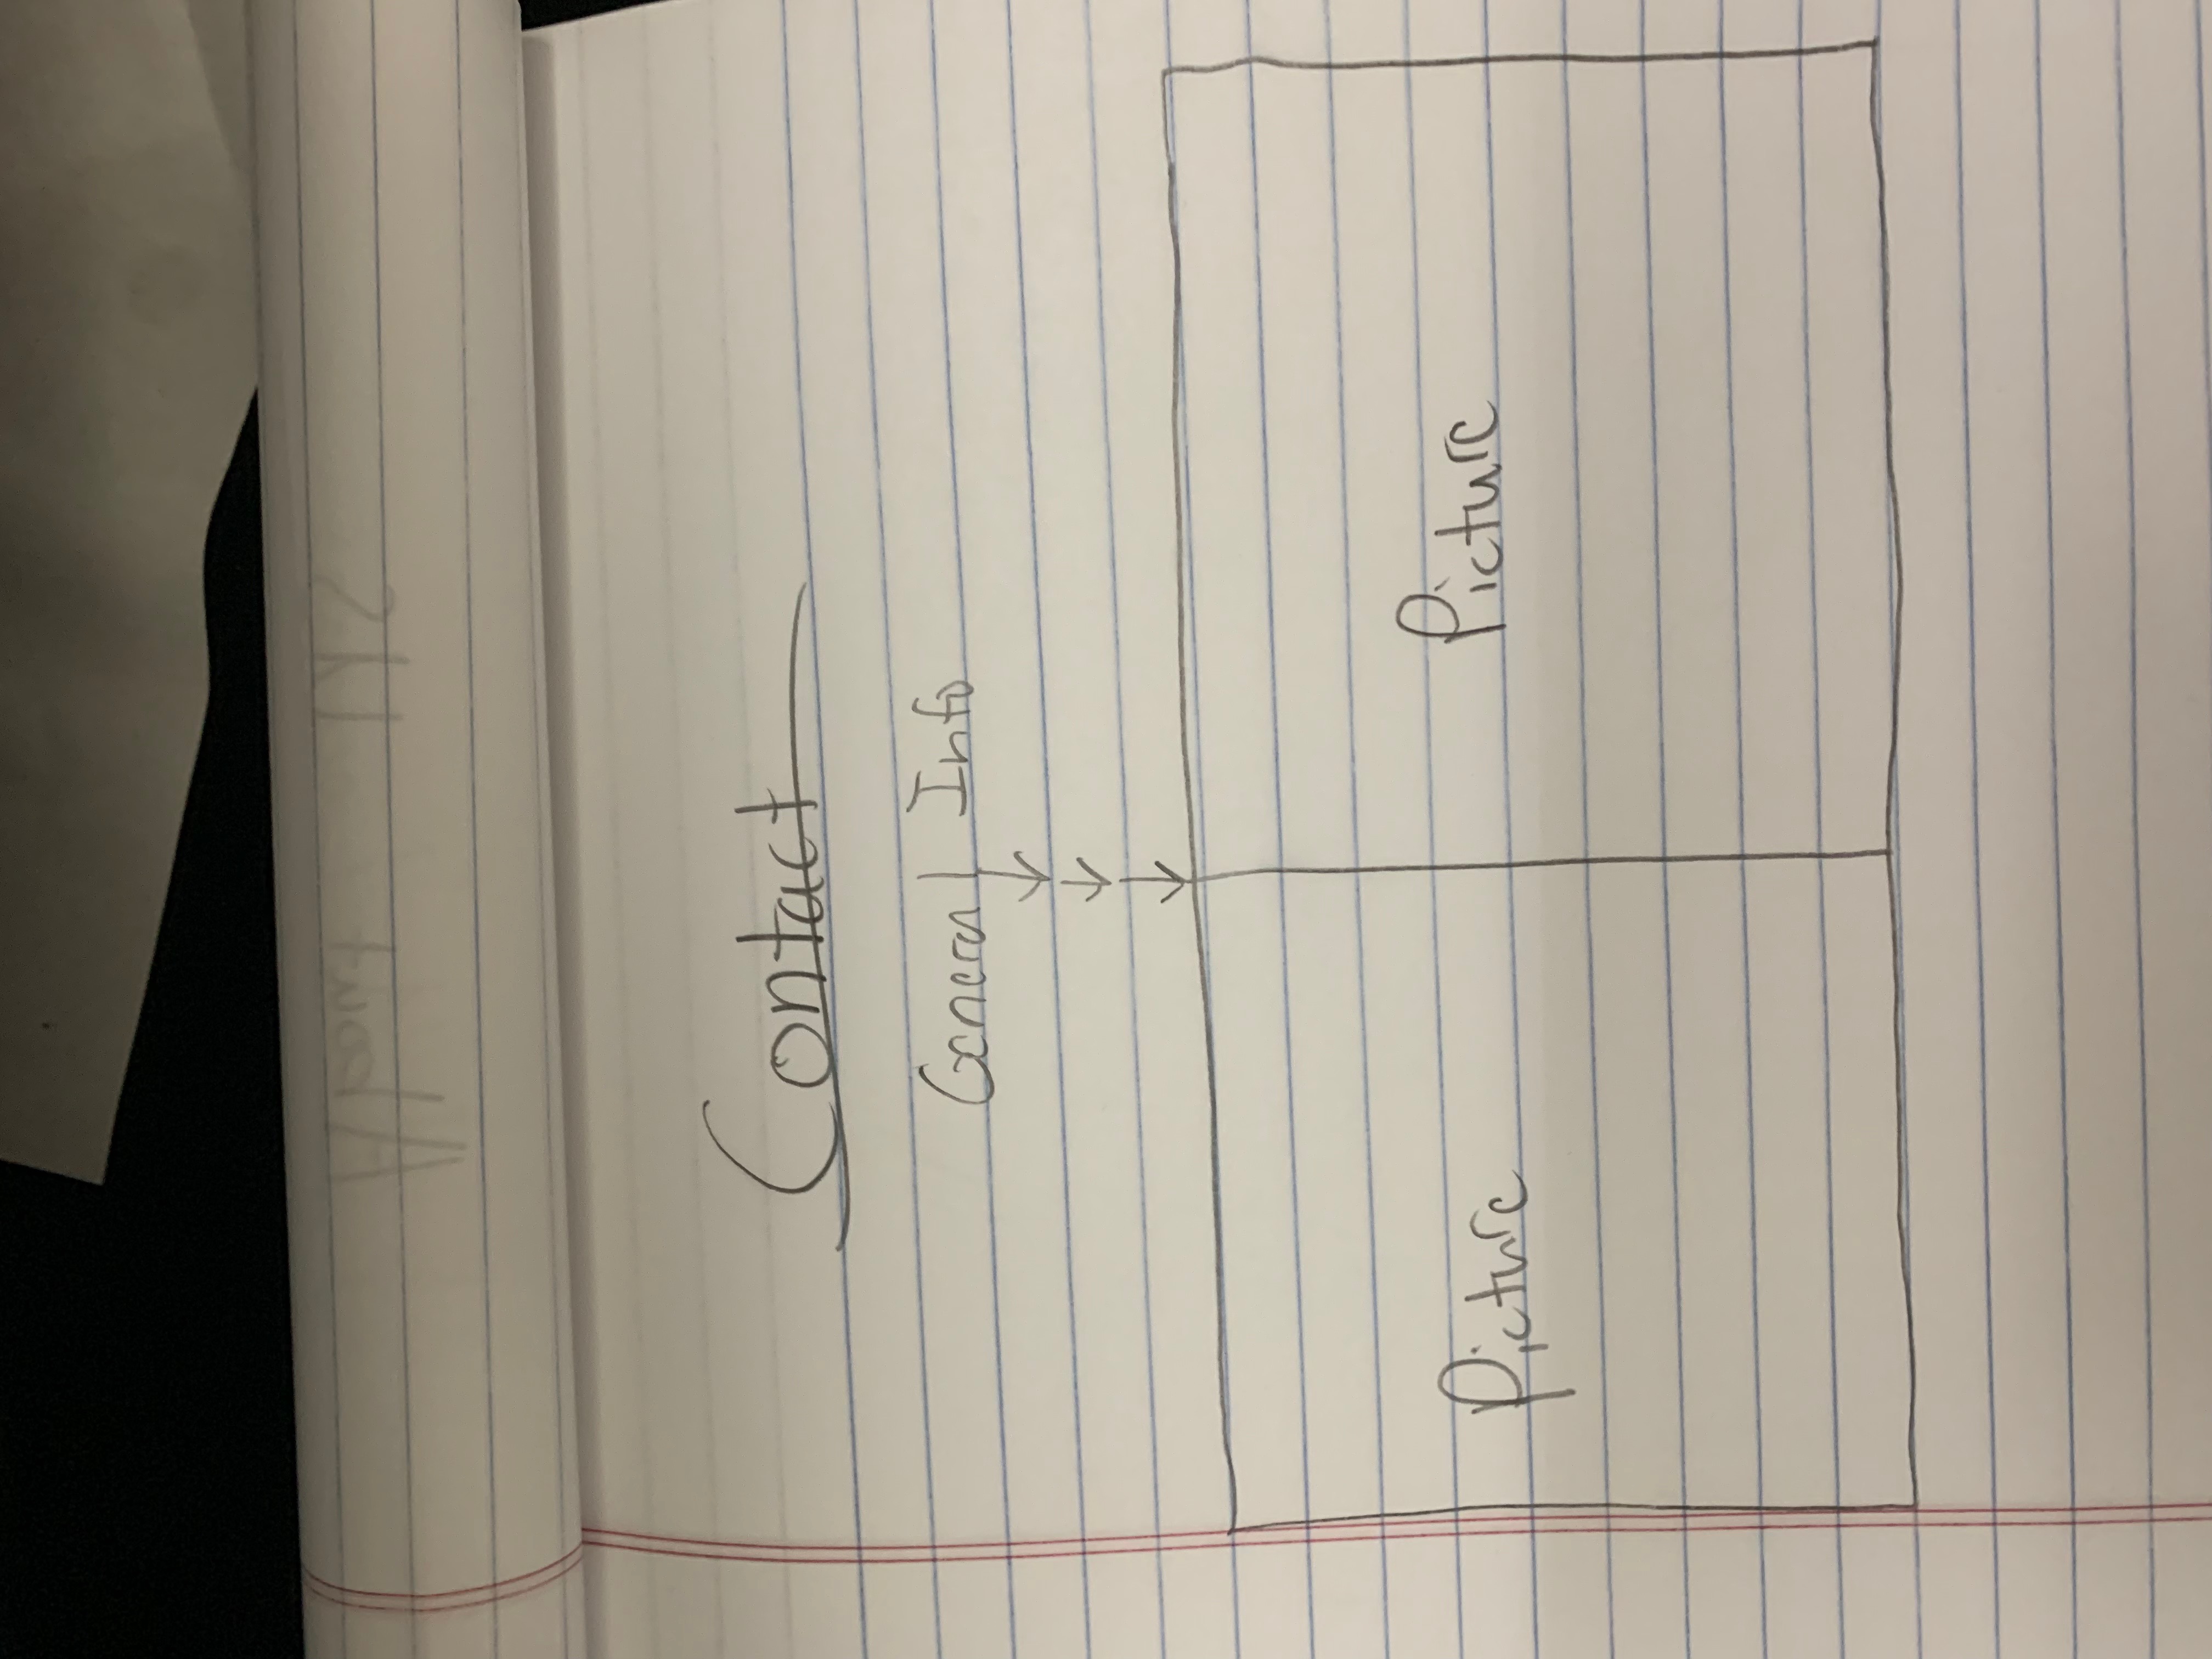 About Us
Contact
General Info
Picture Picture